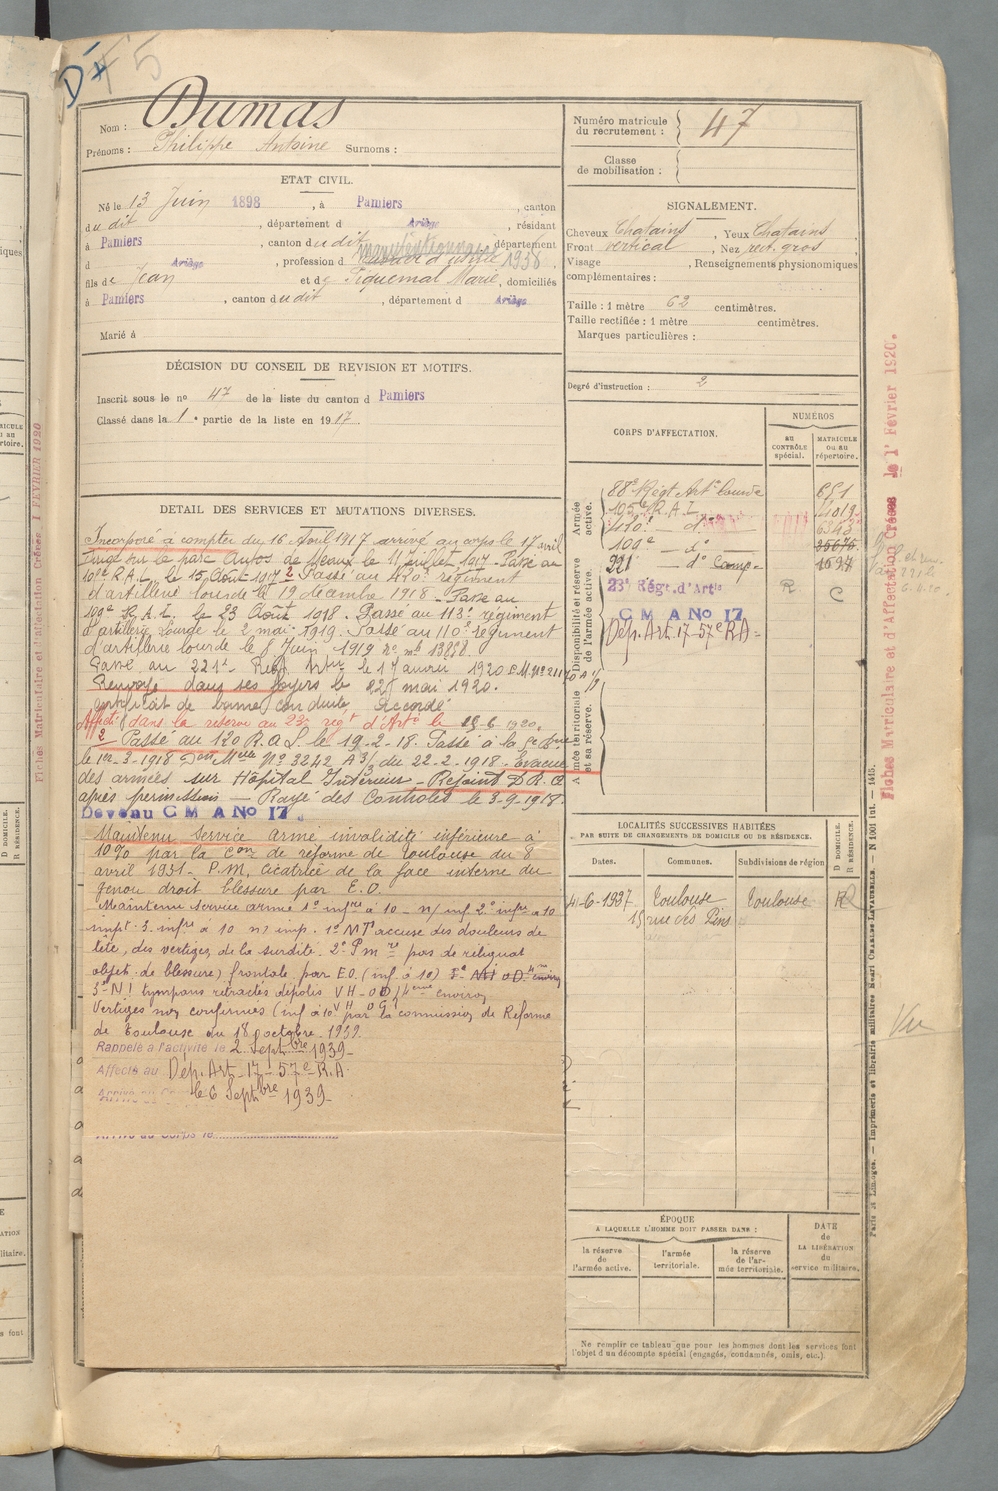 DF5
Nom : Dumas
Prénoms : Philippe Antoine Surnoms :
Numéro matricule du recrutement : 47
Classe de mobilisation :
ETAT CIVIL.
Né le 13 Juin 1898, à Pamiers, canton
dudit, département d Ariège, résidant
à Pamiers, canton dudit, département
d Ariège, profession d manutentionnaire 1938.
fils de Jean et de Piquemal Marie, domiciliés
à Pamiers, canton dudit, département d Ariège
Marié à
SIGNALEMENT.
Cheveux Chatains, Yeux Chatains
Front vertical, Nez rect. gros
Visage, Renseignements physionomiques
complémentaires :
Taille : 1 mètre 62 centimètres.
Taille rectifiée : 1 mètre centimètres.
Marques particulières :
Degré d'instruction : 2
DÉCISION DU CONSEIL DE REVISION ET MOTIFS.
Inscrit sous le no 47 de la liste du canton d Pamiers
Classé dans la 1e partie de la liste en 1917.
DETAIL DES SERVICES ET MUTATIONS DIVERSES.
Incorporé à compter du 16 Avril 1917 arrivé au corps le 17 avril
Dirigé sur le parc Autos de Meaux le 11 Juillet 1917 - Passé au
105e R.A.L. le 15 Août 1917 2 Passé au 410e régiment
d'artillerie lourde le 19 décembre 1918 - Passé au
109e R.A.L. le 23 Août 1918. Passé au 113e régiment
d'artillerie Lourde le 2 mai 1919. Passé au 110e régiment
d'artillerie lourde le 8 Juin 1919 no mle 13858.
Passé au 221e Regt Artie le 1 Janvier 1920 E.M. No 21170 A 1/3
Renvoyé dans ses foyers le 22 mai 1920.
certificat de bonne conduite Accordé
Affecté dans la réserve au 23e regt d'Artie le 15-6 1920.
2 Passé au 120 R.A.L. le 19-2-18. Passé à la 5e Bie
le 1er-3-1918 Don Melle No 3242 A 3/3 du 22-2-1918 - Evacué
des armées sur Hôpital Intérieur - Rejoint D.R.
après permission - Rayé des Controles le 3-9-1918.
Devenu C M A No 17
Maintenu Service Armé invalidité inférieure à
10% par la Con de réforme de Toulouse du 8
avril 1931 - P.M. cicatrice de la face interne du
genou droit blessure par E.O.
Maintenu service armé 1o infre à 10 - n/ imp. 2o infre à 10
impt. 3. infre à 10 n/ imp. 1o N I accuse des douleurs de
tête, des vertiges de la surdité. 2o P m pas de reliquat
objet. de blessure) frontale par EO. (inf à 10)
3o N I tympans rétractés dépolis VH - OD, 4 eme environ
Vertiges non confirmés (inf à 10 par la commission de Réforme
de Toulouse du 18 octobre 1939.
Rappelé à l'activité le 2 Septbre 1939 -
Affecté au Dép. Art. 17 - 57e R.A.
Arrivé au Corps le 6 Septbre 1939 -
Arrivé au Corps le
CORPS D'AFFECTATION.
NUMÉROS
au CONTRÔLE spécial.
MATRICULE ou au répertoire.
Armée active.
88e Régt Artie Lourde 651
105e R.A.L. 11019
120e - do 6343
109e - do 35675
221 - do Camp - 1697
Disponibilité et réserve de l'armée active.
23e Régt. d'Artie R C
C M A No 17
Dép. Art. 17 - 57e R A -
Armée territoriale et sa réserve.
LOCALITÉS SUCCESSIVES HABITÉES
PAR SUITE DE CHANGEMENTS DE DOMICILE OU DE RÉSIDENCE.
D DOMICILE.
R RÉSIDENCE.
Dates. Communes. Subdivisions de région
4-6-1937 Toulouse Toulouse R
15 rue des Pins
ÉPOQUE
A LAQUELLE L'HOMME DOIT PASSER DANS :
la réserve de l'armée active.
l'armée territoriale.
la réserve de l'armée territoriale.
DATE de LA LIBÉRATION du service militaire.
Ne remplir ce tableau que pour les hommes dont les services font
l'objet d'un décompte spécial (engagés, condamnés, omis, etc.).
Fiches Matriculaire et d'Affectation Créées le 1er Février 1920.
Vu
Paris et Limoges. — Imprimerie et librairie militaires Henri CHARLES-LAVAUZELLE. — N 1001 iut. — 1415.
Fiches Matriculaire et d'Affectation Créées 1 FEVRIER 1920